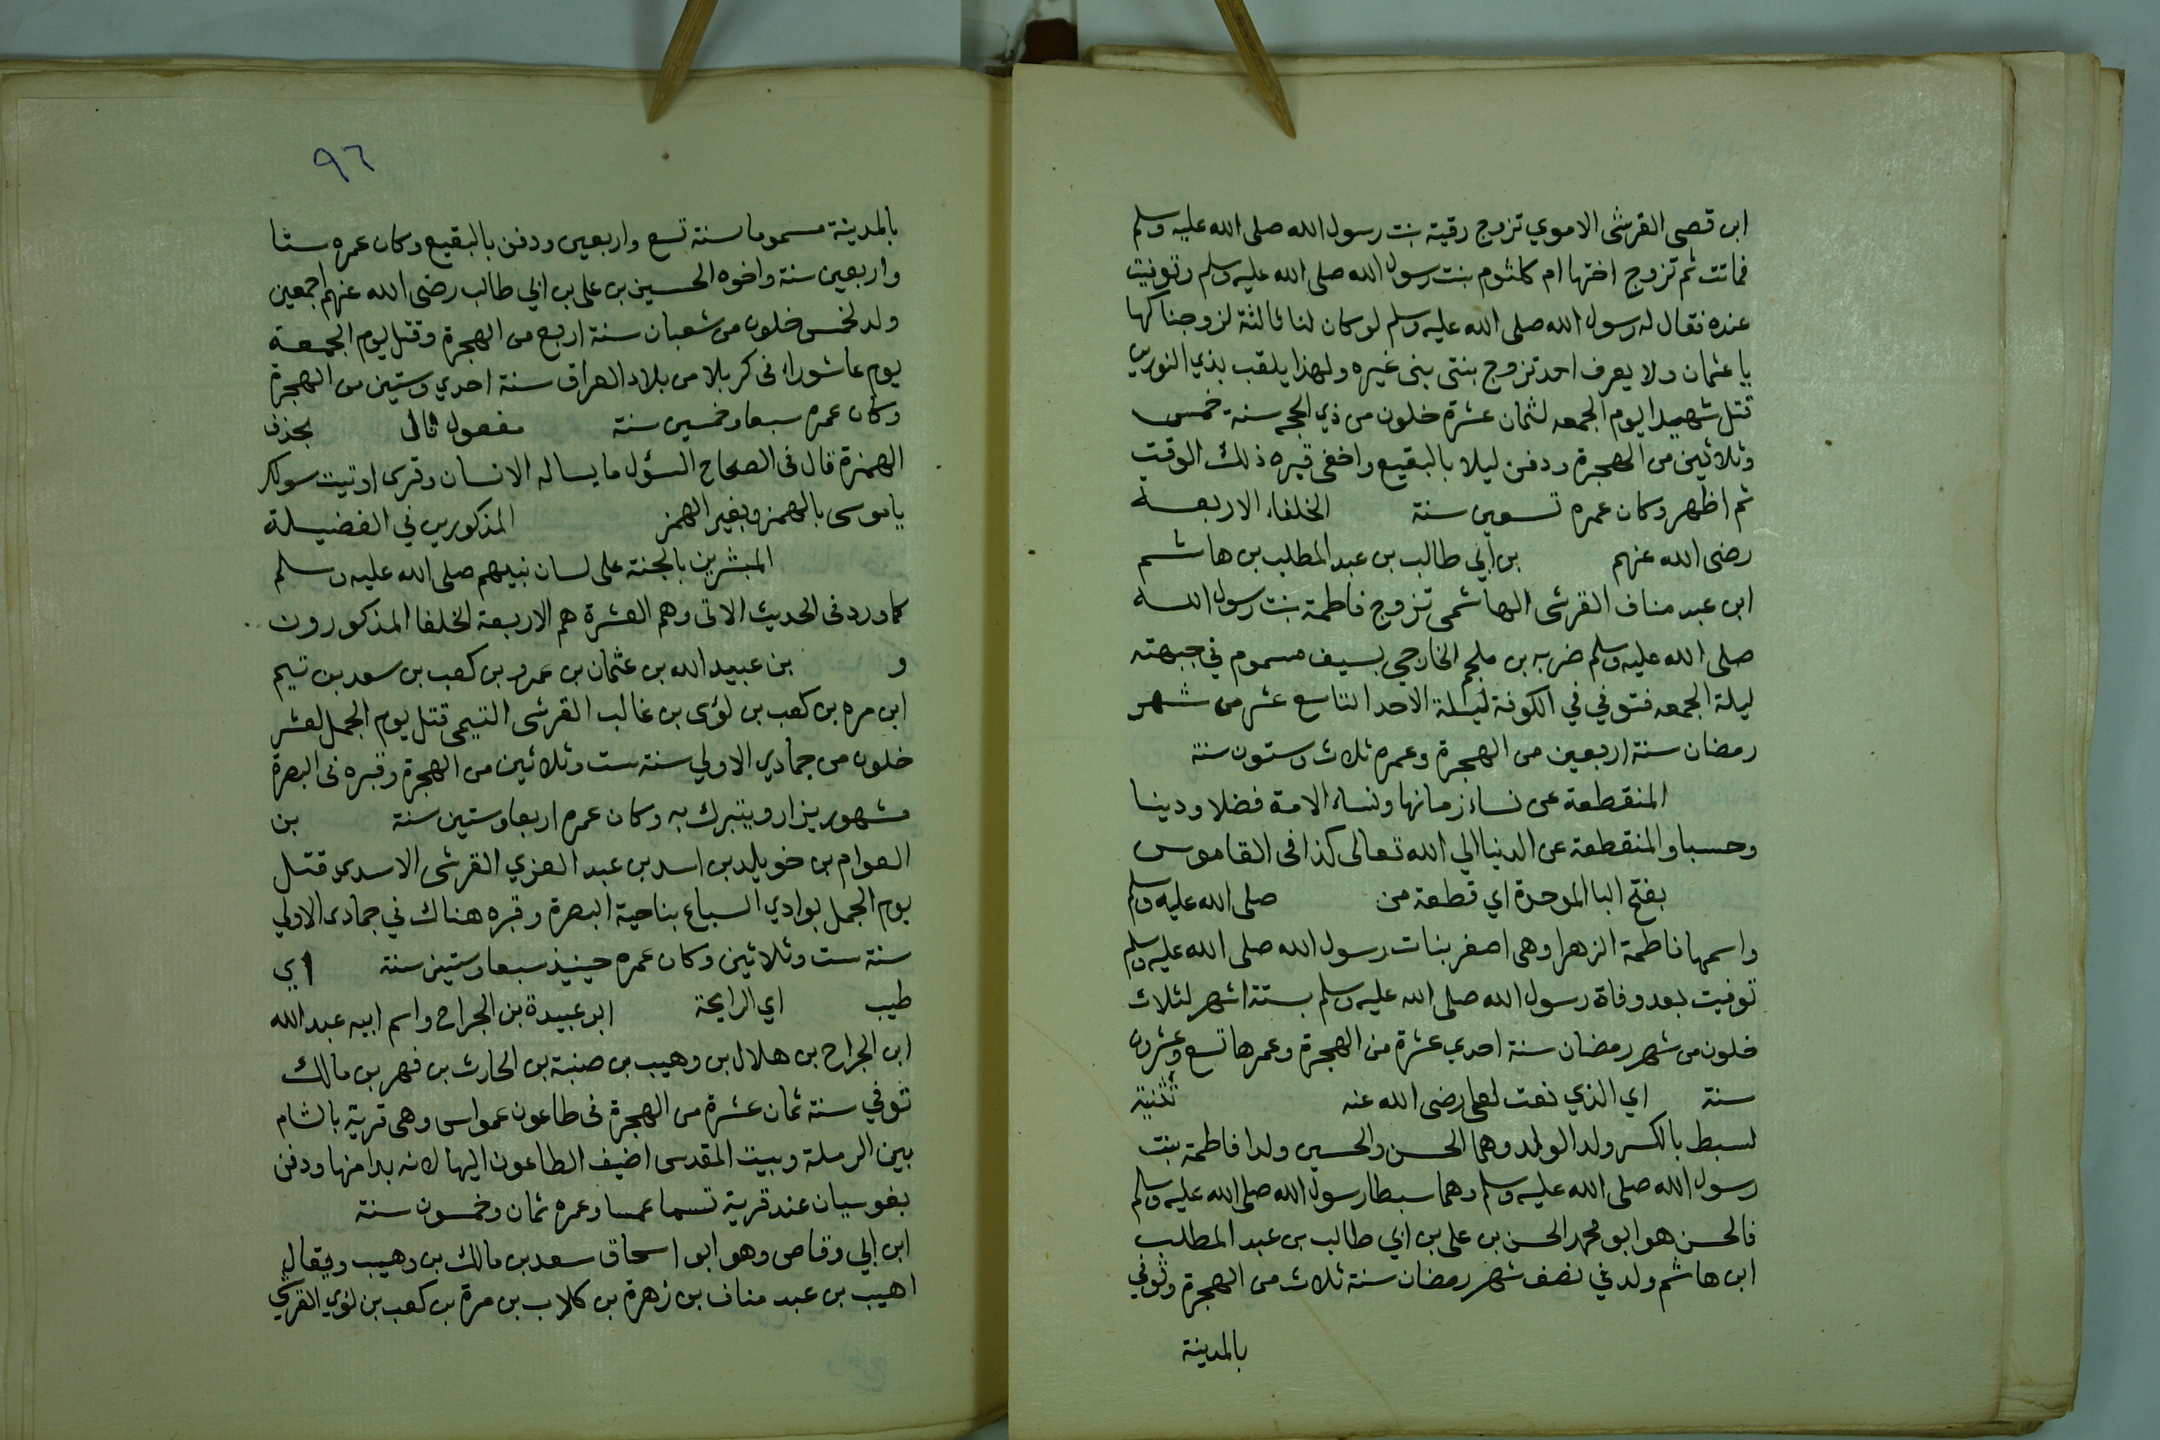 ابن قصى القرشى الاموي تزوج رقية بنت رسول الله صلى الله عليه وسلم
فماتت ثم تزوج اختها ام كلثوم بنت رسول الله صلى الله عليه وسلم وتوفيت
عنده فقال له رسول الله صلى الله عليه وسلم لو كان لنا ثالثة لزوجناكها
يا عثمان ولا يعرف احد تزوج بنتى بنى غيره ولهذا يلقب بذي النورين
قتل شهيدا يوم الجمعه لثمان عشرة خلون من ذي الحجه سنة خمس
وثلاثين من الهجرة ودفن ليلا بالبقيع واخفى قبره ذلك الوقت
ثم اظهر وكان عمره تسعين سنة الخلفاء الاربعة
رضى الله عنهم بن ابي طالب بن عبد المطلب بن هاشم
ابن عبد مناف القرشى الهاشمى تزوج فاطمة بنت رسول الله
صلى الله عليه وسلم ضربه بن ملجم الخارجي بسيف مسموم في جبهته
ليلة الجمعه فتوفي في الكوفة ليلة الاحد التاسع عشر من شهر
رمضان سنة اربعين من الهجرة وعمره ثلاث وستون سنة
المنقطعة عن نساء زمانها ونساء الامة فضلا ودينا
وحسبا والمنقطعة عن الدنيا الي الله تعالى كذا فى القاموس
بفتح البا الموحدة اي قطعة من صلى الله عليه وسلم
واسمها فاطمة الزهرا وهى اصغر بنات رسول الله صلى الله عليه وسلم
توفيت بعد وفاة رسول الله صلى الله عليه وسلم بستة اشهر لثلاث
خلون من شهر رمضان سنة احدي عشرة من الهجرة وعمرها تسع وعشرون
سنة اي الذي نعت لعلى رضى الله عنه تثنية
لسبط بالكسر ولد الولد وهما الحسن والحسين ولدا فاطمة بنت
رسول الله صلى الله عليه وسلم وهما سبطا رسول الله صلى الله عليه وسلم
فالحسن هو ابو محمد الحسن بن على بن ابي طالب بن عبد المطلب
ابن هاشم ولد في نصف شهر رمضان سنة ثلاث من الهجرة وتوفي
بالمدينة
٩٦
بالمدينة مسموما سنة تسع واربعين ودفن بالبقيع وكان عمره ستا
واربعين سنة واخوه الحسين بن على بن ابي طالب رضى الله عنهم اجمعين
ولد لخمس خلون من شعبان سنة اربع من الهجرة وقتل يوم الجمعة
يوم عاشوراء فى كربلا من بلاد العراق سنة احدي وستين من الهجرة
وكان عمره سبعا وخمسين سنة مفعول ثانى بحذف
الهمزة قال فى الصحاح السؤل ما يساله الانسان وقرى اوتيت سولك
ياموسى بالهمز وبغير الهمز المذكورين في الفضيلة
المبشرين بالجنة على لسان نبيهم صلى الله عليه وسلم
كما ورد فى الحديث الاتى وهم العشرة هم الاربعة الخلفا المذكورون
و بن عبيد الله بن عثمان بن عمرو بن كعب بن سعد بن تيم
ابن مره بن كعب بن لؤى بن غالب القرشى التيمى قتل يوم الجمل لعشر
خلون من جمادي الاولي سنة ست وثلاثين من الهجرة وقبره فى البصرة
مشهور يزار ويتبرك به وكان عمره اربعا وستين سنة بن
العوام بن خويلد بن اسد بن عبد العزي القرشى الاسدي قتل
يوم الجمل بوادي السباع بناحية البصرة وقبره هناك في جمادى الاولي
سنة ست وثلاثين وكان عمره حينيذ سبعا وستين سنة اي
طيب اي الرايحة ابو عبيدة بن الجراح واسم ابيه عبد الله
ابن الجراح بن هلال بن وهيب بن صنبة بن الحارث بن فهر بن مالك
توفي سنة ثمان عشرة من الهجرة فى طاعون عمواس وهى قرية بالشام
بين الرملة وبيت المقدس اضيف الطاعون اليها لانه بدا منها ودفن
بغوسيان عند قرية تسما عمسا وعمره ثمان وخمسون سنة
ابن ابي وقاص وهو ابو اسحاق سعد بن مالك بن وهيب ويقال
اهيب بن عبد مناف بن زهرة بن كلاب بن مرة بن كعب بن لؤي القرشي